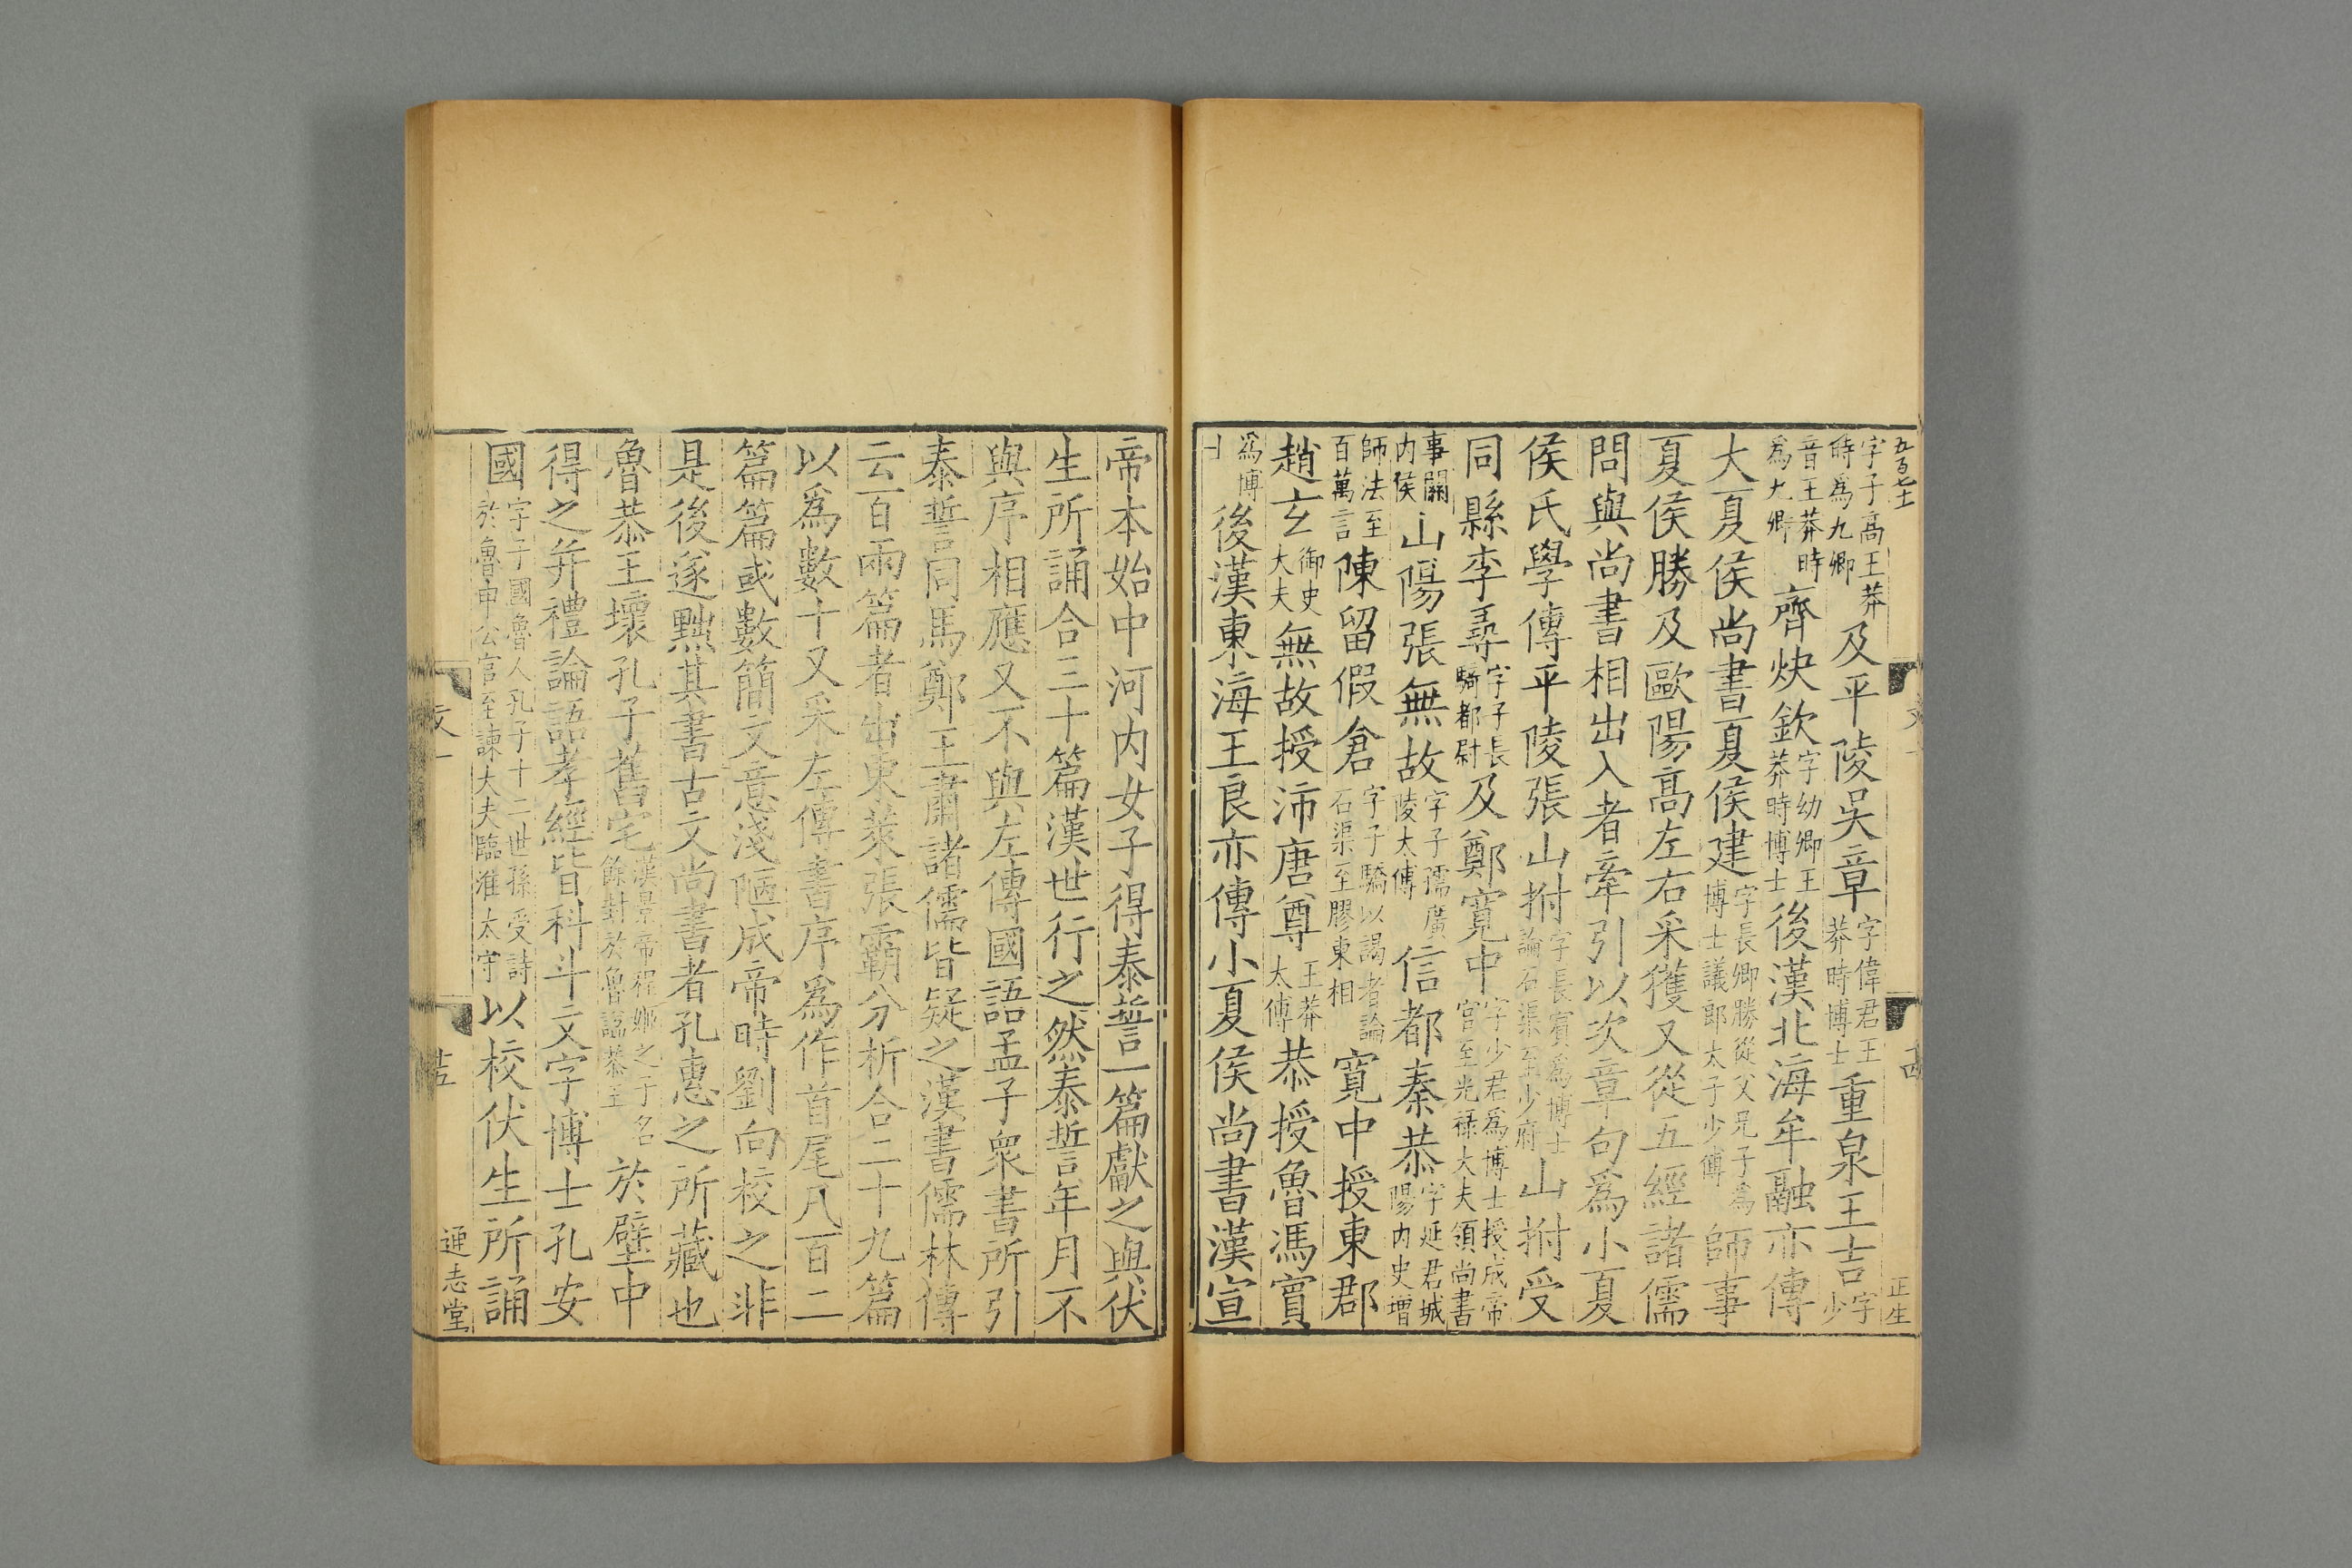 五百七十
正生
字子高王莽時爲九卿及平陵吳章字偉君王莽時博士重泉王吉字少
音王莽時爲九卿齊炔欽字幼卿王莽時博士後漢北海牟融亦傳
大夏侯尚書夏侯建字長卿勝從父兄子爲博士議郎太子少傅師事
夏侯勝及歐陽高左右采獲又從五經諸儒
問與尚書相出入者牽引以次章句爲小夏
侯氏學傳平陵張山拊字長賓爲博士論石渠至少府山拊受
同縣李尋字子長騎都尉及鄭寬中字少君爲博士授成帝官至光祿大夫領尚書
事關內侯山陽張無故字子孺廣陵太傅信都秦恭字延君城陽內史增
師法至百萬言陳留假倉字子驕以謁者論石渠至膠東相寬中授東郡
趙玄御史大夫無故授沛唐尊王莽太傅恭授魯馮賓
爲博士後漢東海王良亦傳小夏侯尚書漢宣
帝本始中河內女子得泰誓一篇獻之與伏
生所誦合三十篇漢世行之然泰誓年月不
與序相應又不與左傳國語孟子衆書所引
泰誓同馬鄭王肅諸儒皆疑之漢書儒林傳
云百兩篇者出東萊張霸分析合二十九篇
以爲數十又采左傳書序爲作首尾凡百二
篇篇或數簡文意淺陋成帝時劉向校之非
是後遂黜其書古文尚書者孔惠之所藏也
魯恭王壞孔子舊宅漢景帝程姬之子名餘封於魯謚恭王於壁中
得之并禮論語孝經皆科斗文字博士孔安
國字子國魯人孔子十二世孫受詩於魯申公官至諫大夫臨淮太守以校伏生所誦
通志堂